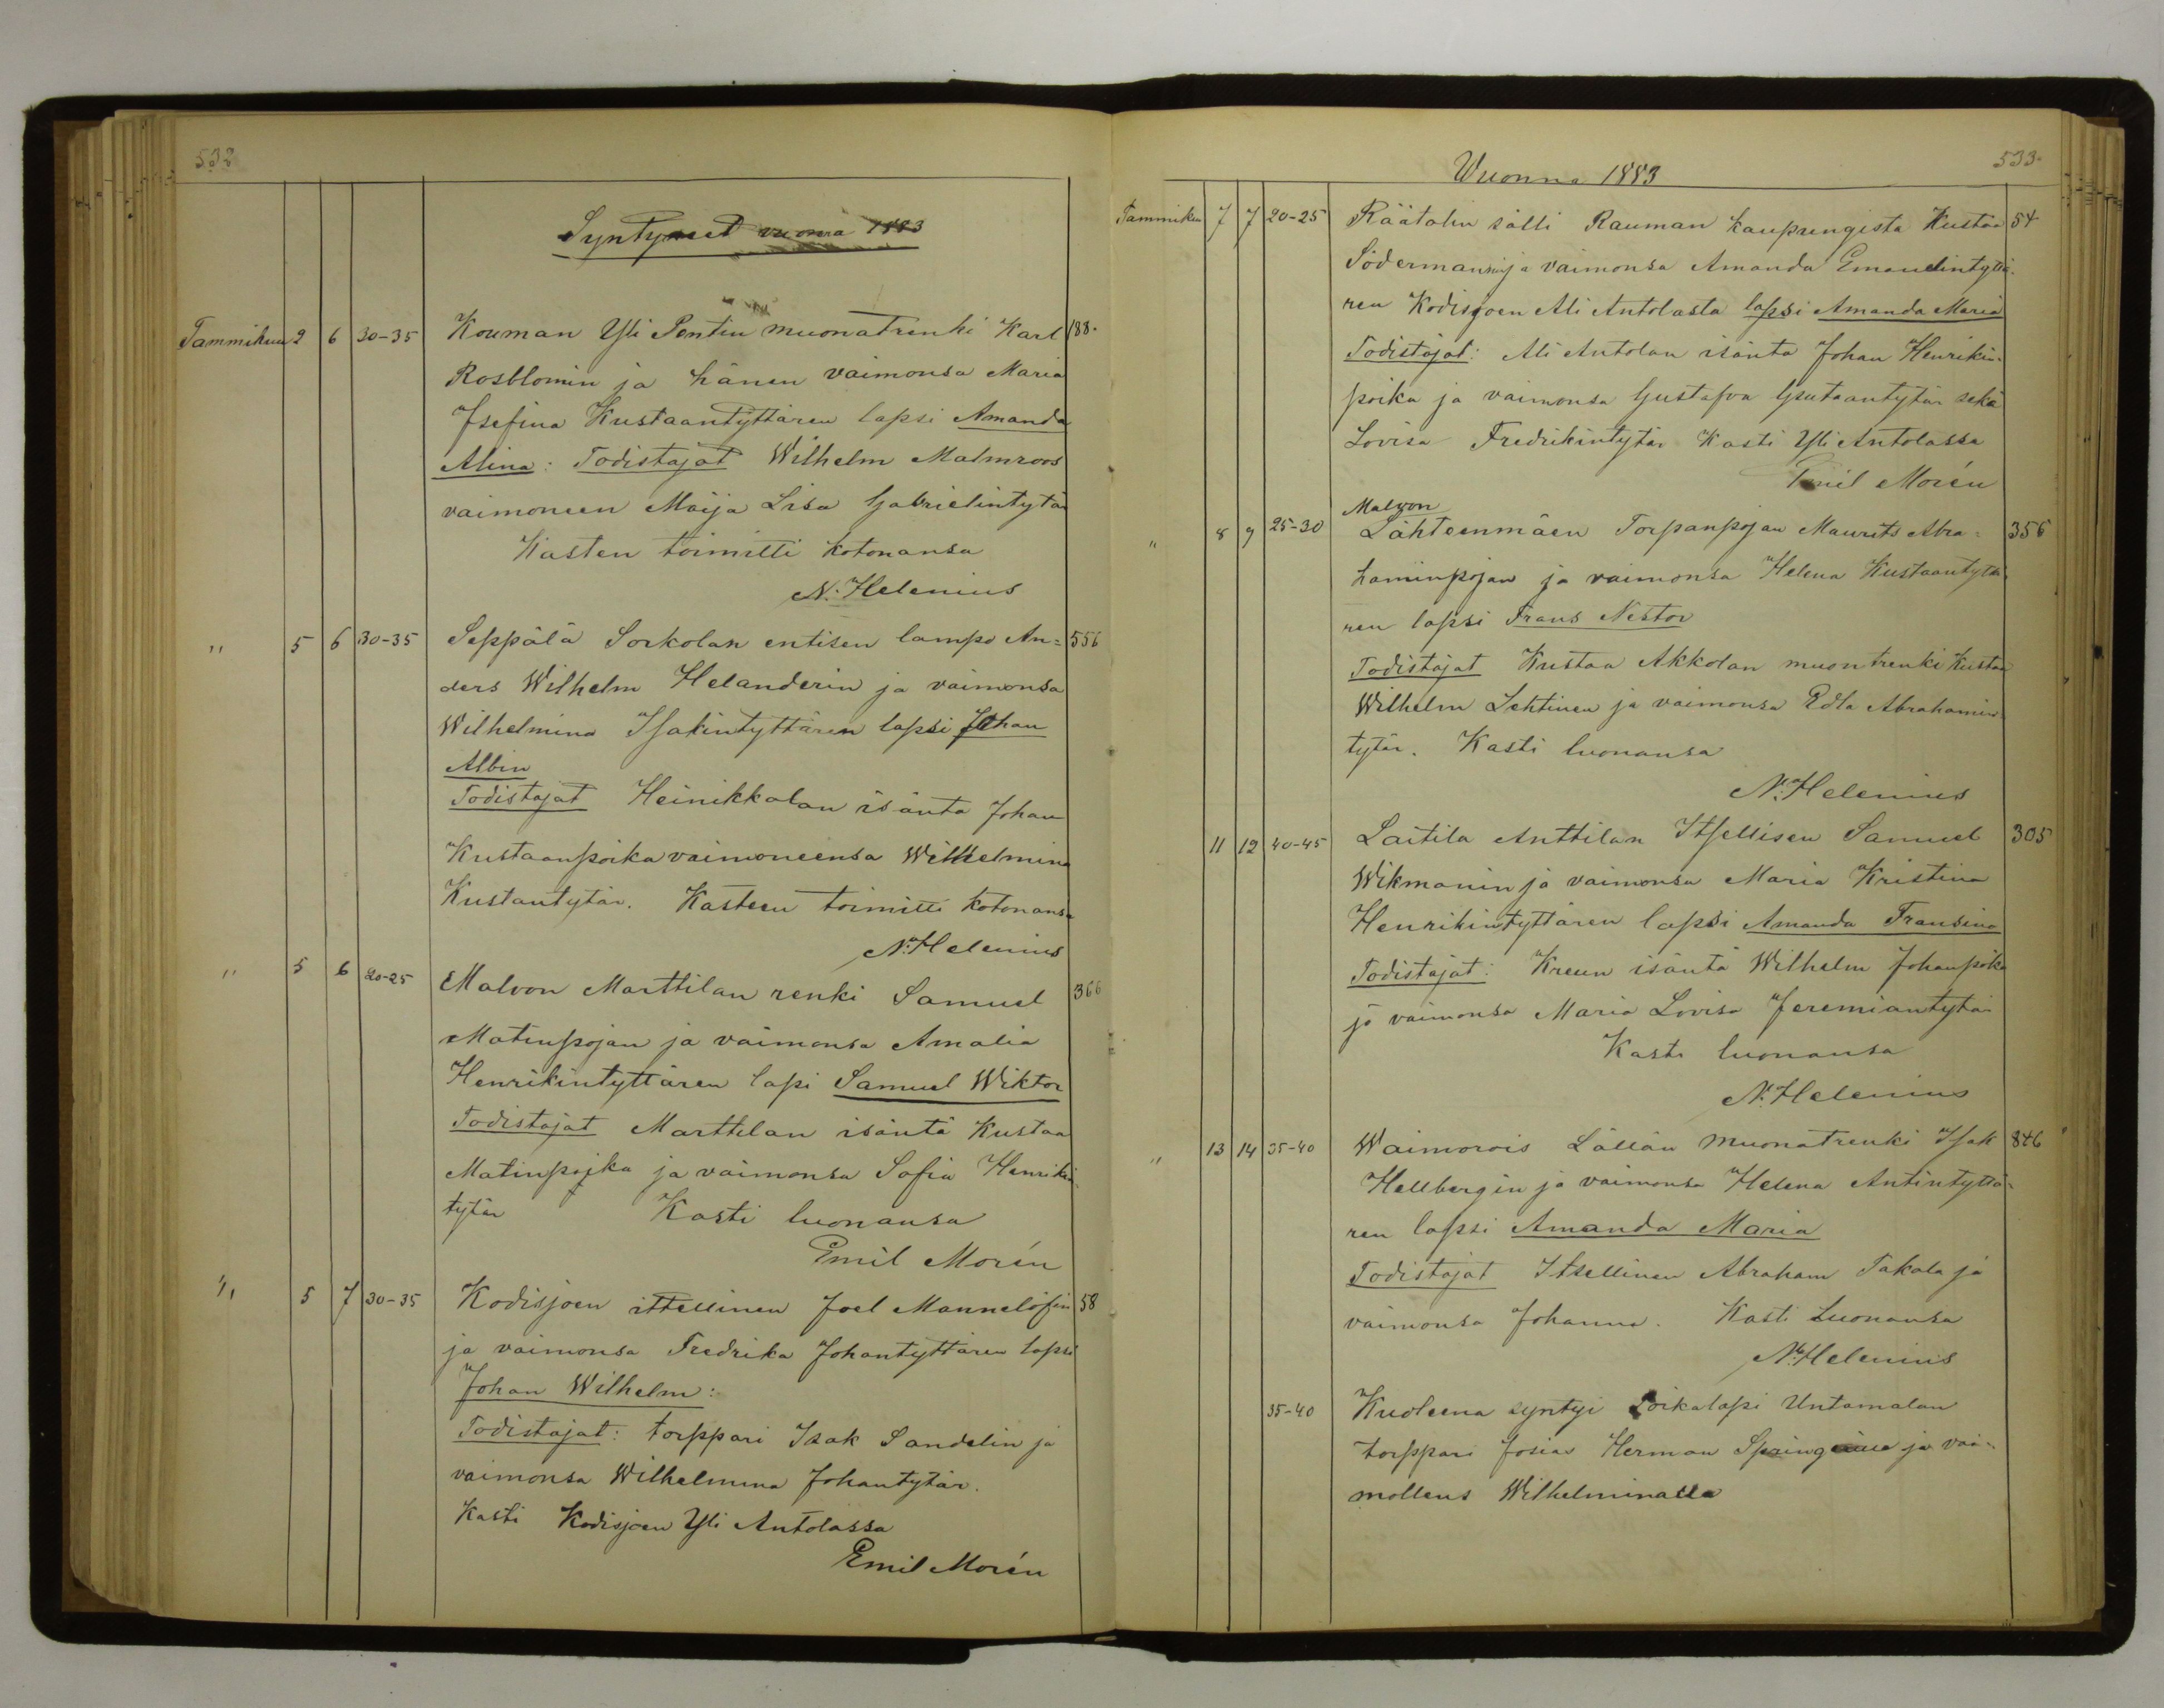 532
Syntyneet vuonna 1883
Tammikuu 2 6 30-35 Kouman Yli Pentin muonatrenki Karl 188.
Rosblomin ja hänen vaimonsa Maria
Josefina Kustaantyttären lapsi Amanda
Alina: Todistajat Wilhelm Malmroos
vaimoneen Maija Lisa Gabrielintytär
Kasten toimitti kotonansa
N. Helenius
" 5 6 30-35 Seppälä Sorkolan entisen lampo An= 556
ders Wilhelm Helanderin ja vaimonsa
Wilhelmina Isakintyttären lapsi Johan
Albin
Todistajat Heinikkalan isäntä Johan
Kustaanpoika vaimoneensa Wilhelmina
Kustantytär. Kasteen toimitti kotonansa
N. Helenius
" 5 6 20-25 Malvon Marttilan renki Samuel 366
Matinpojan ja vaimonsa Amalia
Henrikintyttären lapsi Samuel Wiktor
Todistajat Marttilan isäntä Kustaa
Matinpojka ja vaimonsa Sofia Henrikin
tytär Kasti luonansa
Emil Morén
" 5 7 30-35 Kodisjoen ittellinen Joel Mannelöfin 58
ja vaimonsa Fredrika Johantyttären lapsi
Johan Wilhelm:
Todistajat: torppari Isak Sandelin ja
vaimonsa Wilhelmina Johantytär.
Kasti Kodisjoen Yli Antolassa
Emil Morén
533.
Wuonna 1883
Tammikuu 7 7 20-25 Räätalin sälli Rauman kaupungista Kustaa 54
Södermannin ja vaimonsa Amanda Emanelintyttä
ren Kodisjoen Ali Antolasta lapsi Amanda Maria
Todistajat: Ali Antolan isäntä Johan Henrikin-
poika ja vaimonsa Gustafva Gustaantytär sekä
Lovisa Fredrikintytär Kasti Yli Antolassa
Emil Morén
Malvon
" 8 9 25-30 Lähteenmäen Torpanpojan Maurits Abra= 356
haminpojan ja vaimonsa Helena Kustaantyttä
ren lapsi Frans Nestor
Todistajat Kustaa Akkolan muontrenki Kustaa
Wilhelm Lehtinen ja vaimonsa Edla Abrahamin
tytär. Kasti luonansa
N. Helenius
11 12 40-45 Laitila Anttilan Itsellisen Samuel 305
Wikmanin ja vaimonsa Maria Kristina
Henrikintyttären lapsi Amanda Fransina
Todistajat: Kreun isäntä Wilhelm Johanpoika
ja vaimonsa Maria Lovisa Jeremiantytär
Kasti luonansa
N. Helenius
" 13 14 35-40 Waimorois Lällän muonatrenki Isak 846
Hellbergin ja vaimonsa Helena Antintyttä-
ren lapsi Amanda Maria
Todistajat Itsellinen Abraham Takala ja
vaimonsa Johanna. Kasti Luonansa
N. Helenius
35-40 Kuoleena syntyi Poikalapsi Untamalan
torppari Josia Herman ja vai-
mollens Wilhelminalla